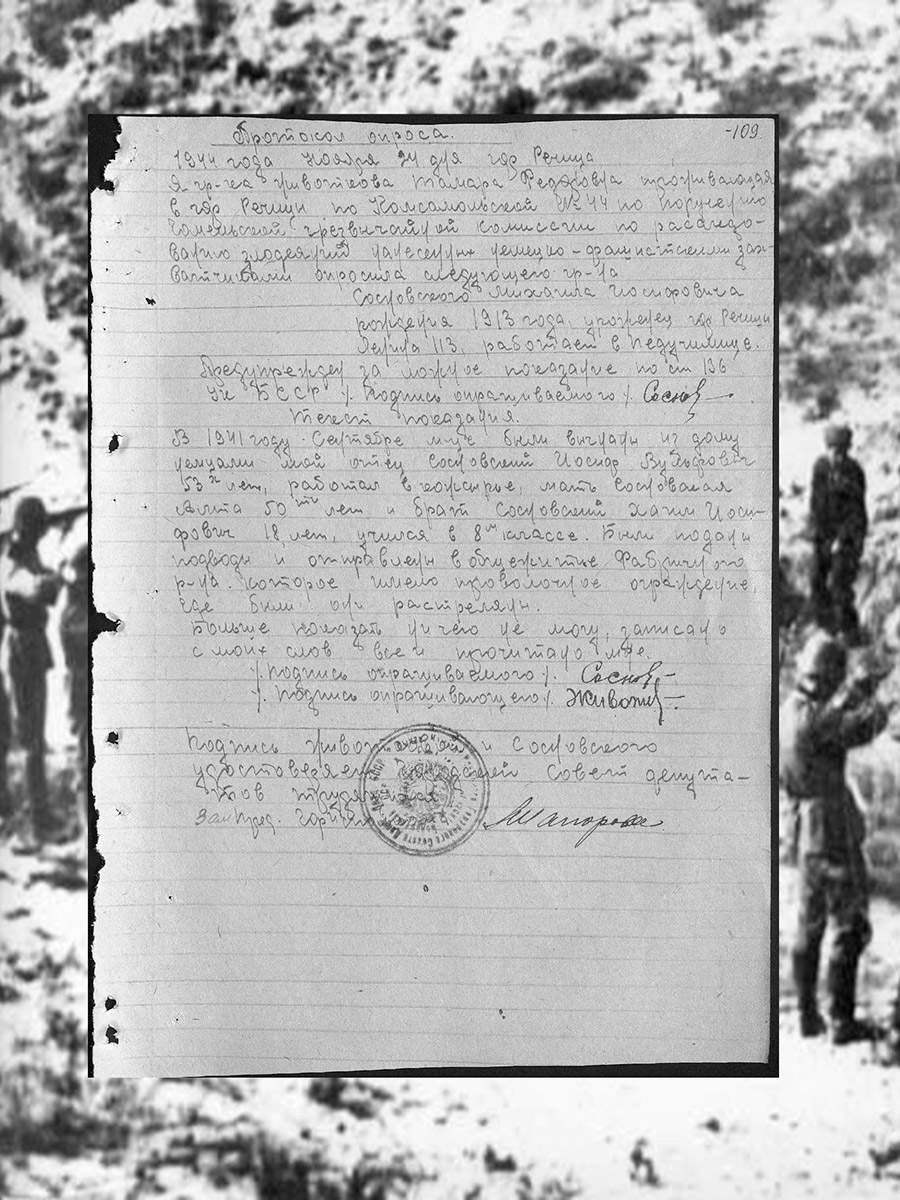 -109
Протокол опроса.
1944 года Ноября 24 дня гор Речица
Я гр-ка Животкова Тамара Федоровна проживающая
в гор Речици по Комсомольской № 44 по поручению
Гомельской чрезвычайной комиссии по расследо-
ванию злодеяний нанесенных немецко-фашистскими зах-
ватчиками опросила следующего гр-на
Сосновского Михаила Иосифовича
рождения 1913 года, уроженец гор Речици
Ленина 113, работает в педучилище.
Предупрежден за ложное показание по ст 136
УК БССР /. Подпись опрашиваемого /. Соснов
Текст показания.
В 1941 году Сентябре м-це были выгнаны из дому
немцами мой отец Сосновский Иосиф Вульфович
53х лет, работал в, мать Сосновская
50ти лет и брат Сосновский Хаим Иоси-
фович 18 лет, учился в 8м классе. Были поданы
подводы и отправлены в общежитие Фабричного
р-на. Которое имело проволочное ограждение,
где были они растреляны.
Больше показать ничего не могу, записано
с моих слов все и прочитано мне.
/. Подпись опрашиваемого /. Соснов
/. Подпись опрашивающего /. Животк
Подпись и Сосновского
Совет депута-
тов
Зам пред.